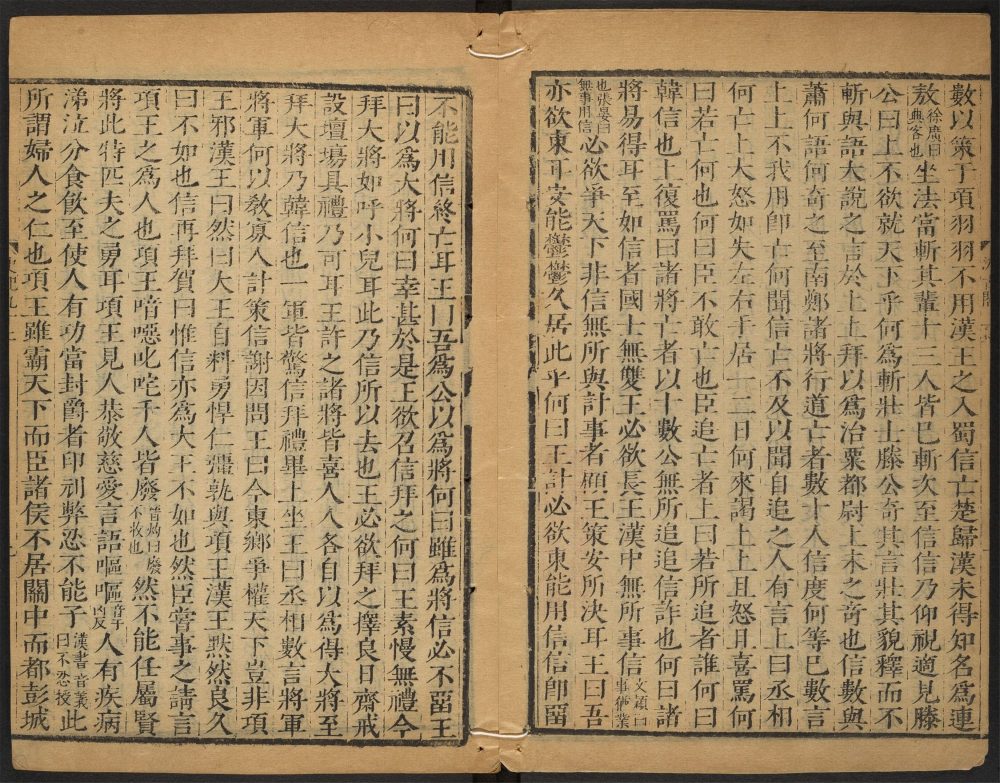 數以策干項羽羽不用漢王之入蜀信亡楚歸漢未得知名為連
敖徐廣曰典客也坐法當斬其輩十三人皆已斬次至信信乃仰視適見滕
公曰上不欲就天下乎何為斬壯士滕公奇其言壯其貌釋而不
斬與語大說之言於上上拜以為治粟都尉上未之奇也信數與
蕭何語何奇之至南鄭諸將行道亡者數十人信度何等已數言
上上不我用即亡何聞信亡不及以聞自追之人有言上曰丞相
何亡上大怒如失左右手居一二日何來謁上上且怒且喜罵何
曰若亡何也何曰臣不敢亡也臣追亡者上曰若所追者誰何曰
韓信也上復罵曰諸將亡者以十數公無所追追信詐也何曰諸
將易得耳至如信者國士無雙王必欲長王漢中無所事信文穎曰事猶業
也張晏曰無事用信必欲爭天下非信無所與計事者顧王策安所決耳王曰吾
亦欲東耳安能鬱鬱久居此乎何曰王計必欲東能用信信即留
不能用信終亡耳王曰吾為公以為將何曰雖為將信必不留王
曰以為大將何曰幸甚於是王欲召信拜之何曰王素慢無禮今
拜大將如呼小兒耳此乃信所以去也王必欲拜之擇良日齋戒
設壇場具禮乃可耳王許之諸將皆喜人人各自以為得大將至
拜大將乃韓信也一軍皆驚信拜禮畢上坐王曰丞相數言將軍
將軍何以教寡人計策信謝因問王曰今東鄉爭權天下豈非項
王邪漢王曰然曰大王自料勇悍仁彊孰與項王漢王默然良久
曰不如也信再拜賀曰惟信亦為大王不如也然臣嘗事之請言
項王之為人也項王喑噁叱咤千人皆廢晉灼曰廢不收也然不能任屬賢
將此特匹夫之勇耳項王見人恭敬慈愛言語嘔嘔音于凶反人有疾病
涕泣分食飲至使人有功當封爵者印刓弊忍不能予漢書音義曰不忍授此
所謂婦人之仁也項王雖霸天下而臣諸侯不居關中而都彭城